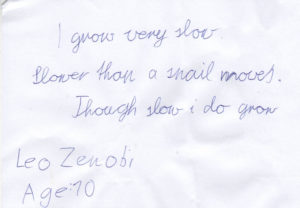 I grow very slow.
Slower than a snail moves.
Though slow i do grow
Leo Zenobi
Age:10